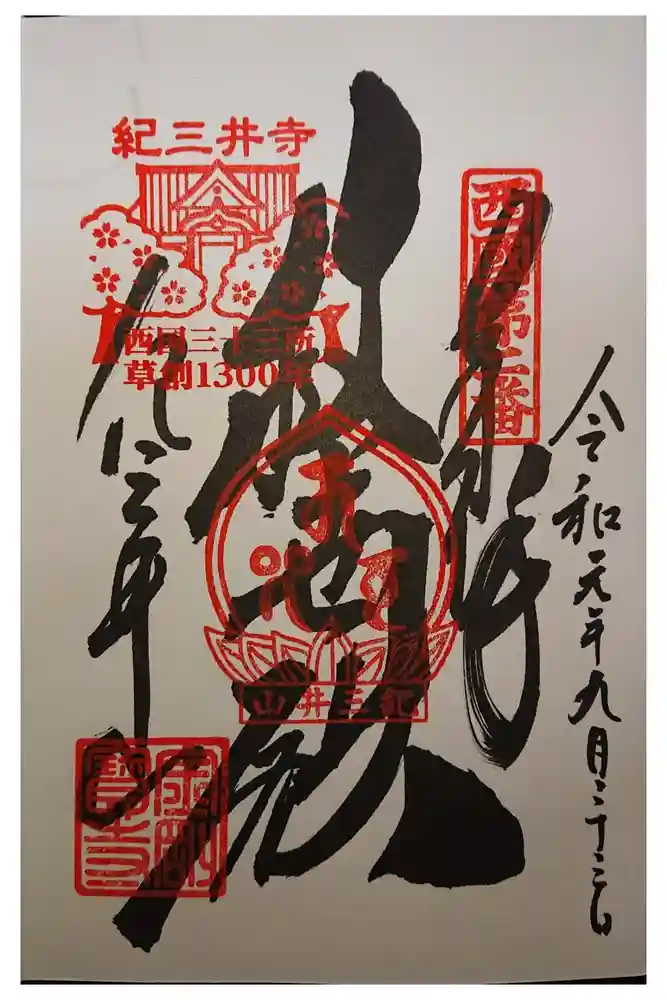 令和元年九月二十三日
西國第二番
奉拝
救世殿
紀三井山
紀三井寺
西国三十三所
草創1300年
紀三井寺
金剛
寳寺